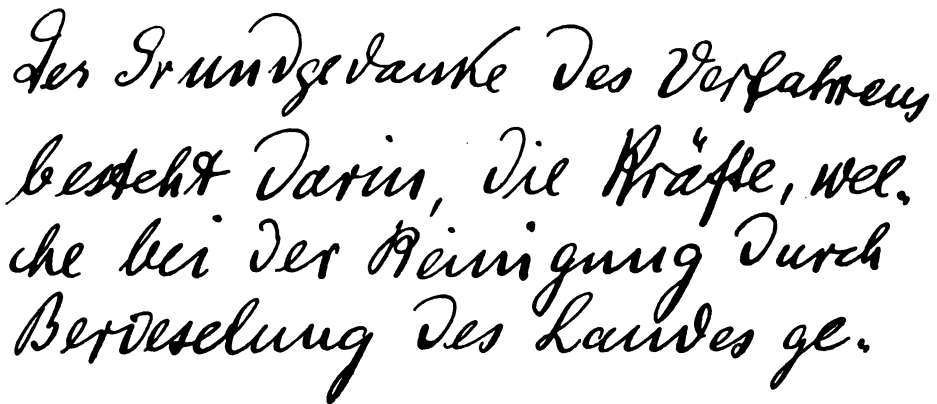 Der Grundgedanke des Verfahrens
besteht darin, die Kräfte, wel-
che bei der Reinigung durch
Berieselung des Landes ge-